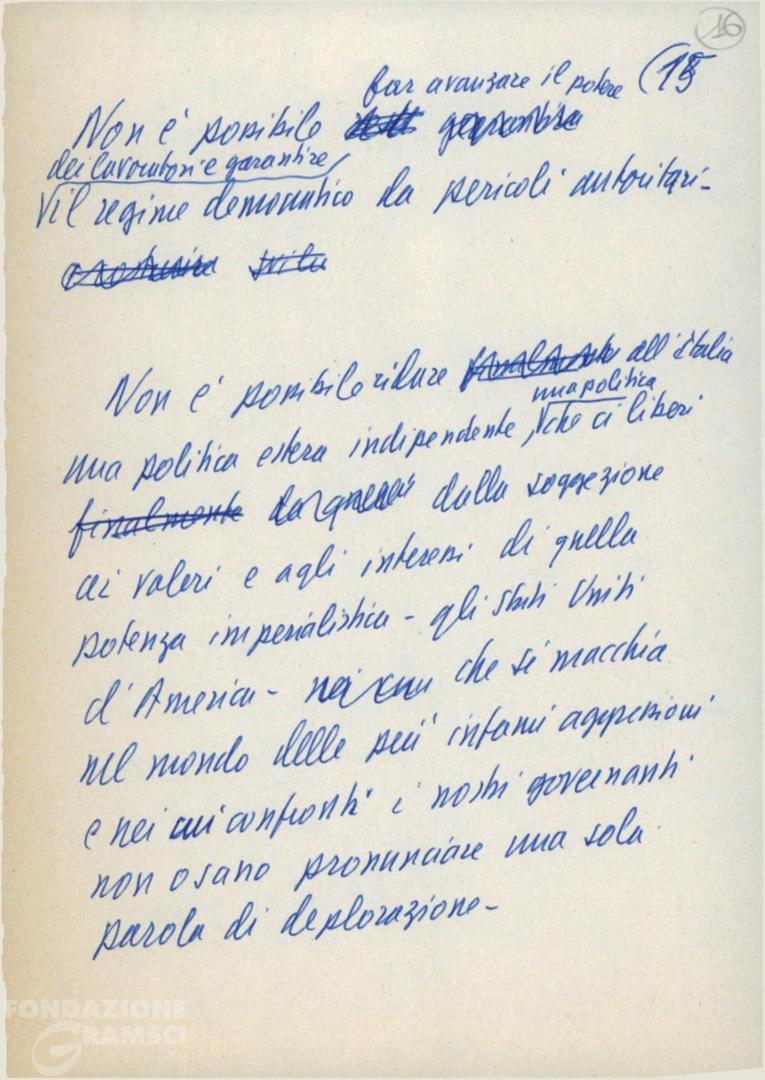 16
far avanzare il potere (15
Non è possibile garantire
dei lavoratori e garantire
il regime democratico da pericoli autoritari-
costruire
Non è possibile ridare finalmente all'Italia
una politica
una politica estera indipendente, che ci liberi
finalmente dalla soggezione
ai valori e agli interessi di quella
potenza imperialistica - gli Stati Uniti
d'America - che si macchia
nel mondo delle più infami aggressioni
e nei cui confronti i nostri governanti
non osano pronunciare una sola
parola di deplorazione-
FONDAZIONE
GRAMSCI